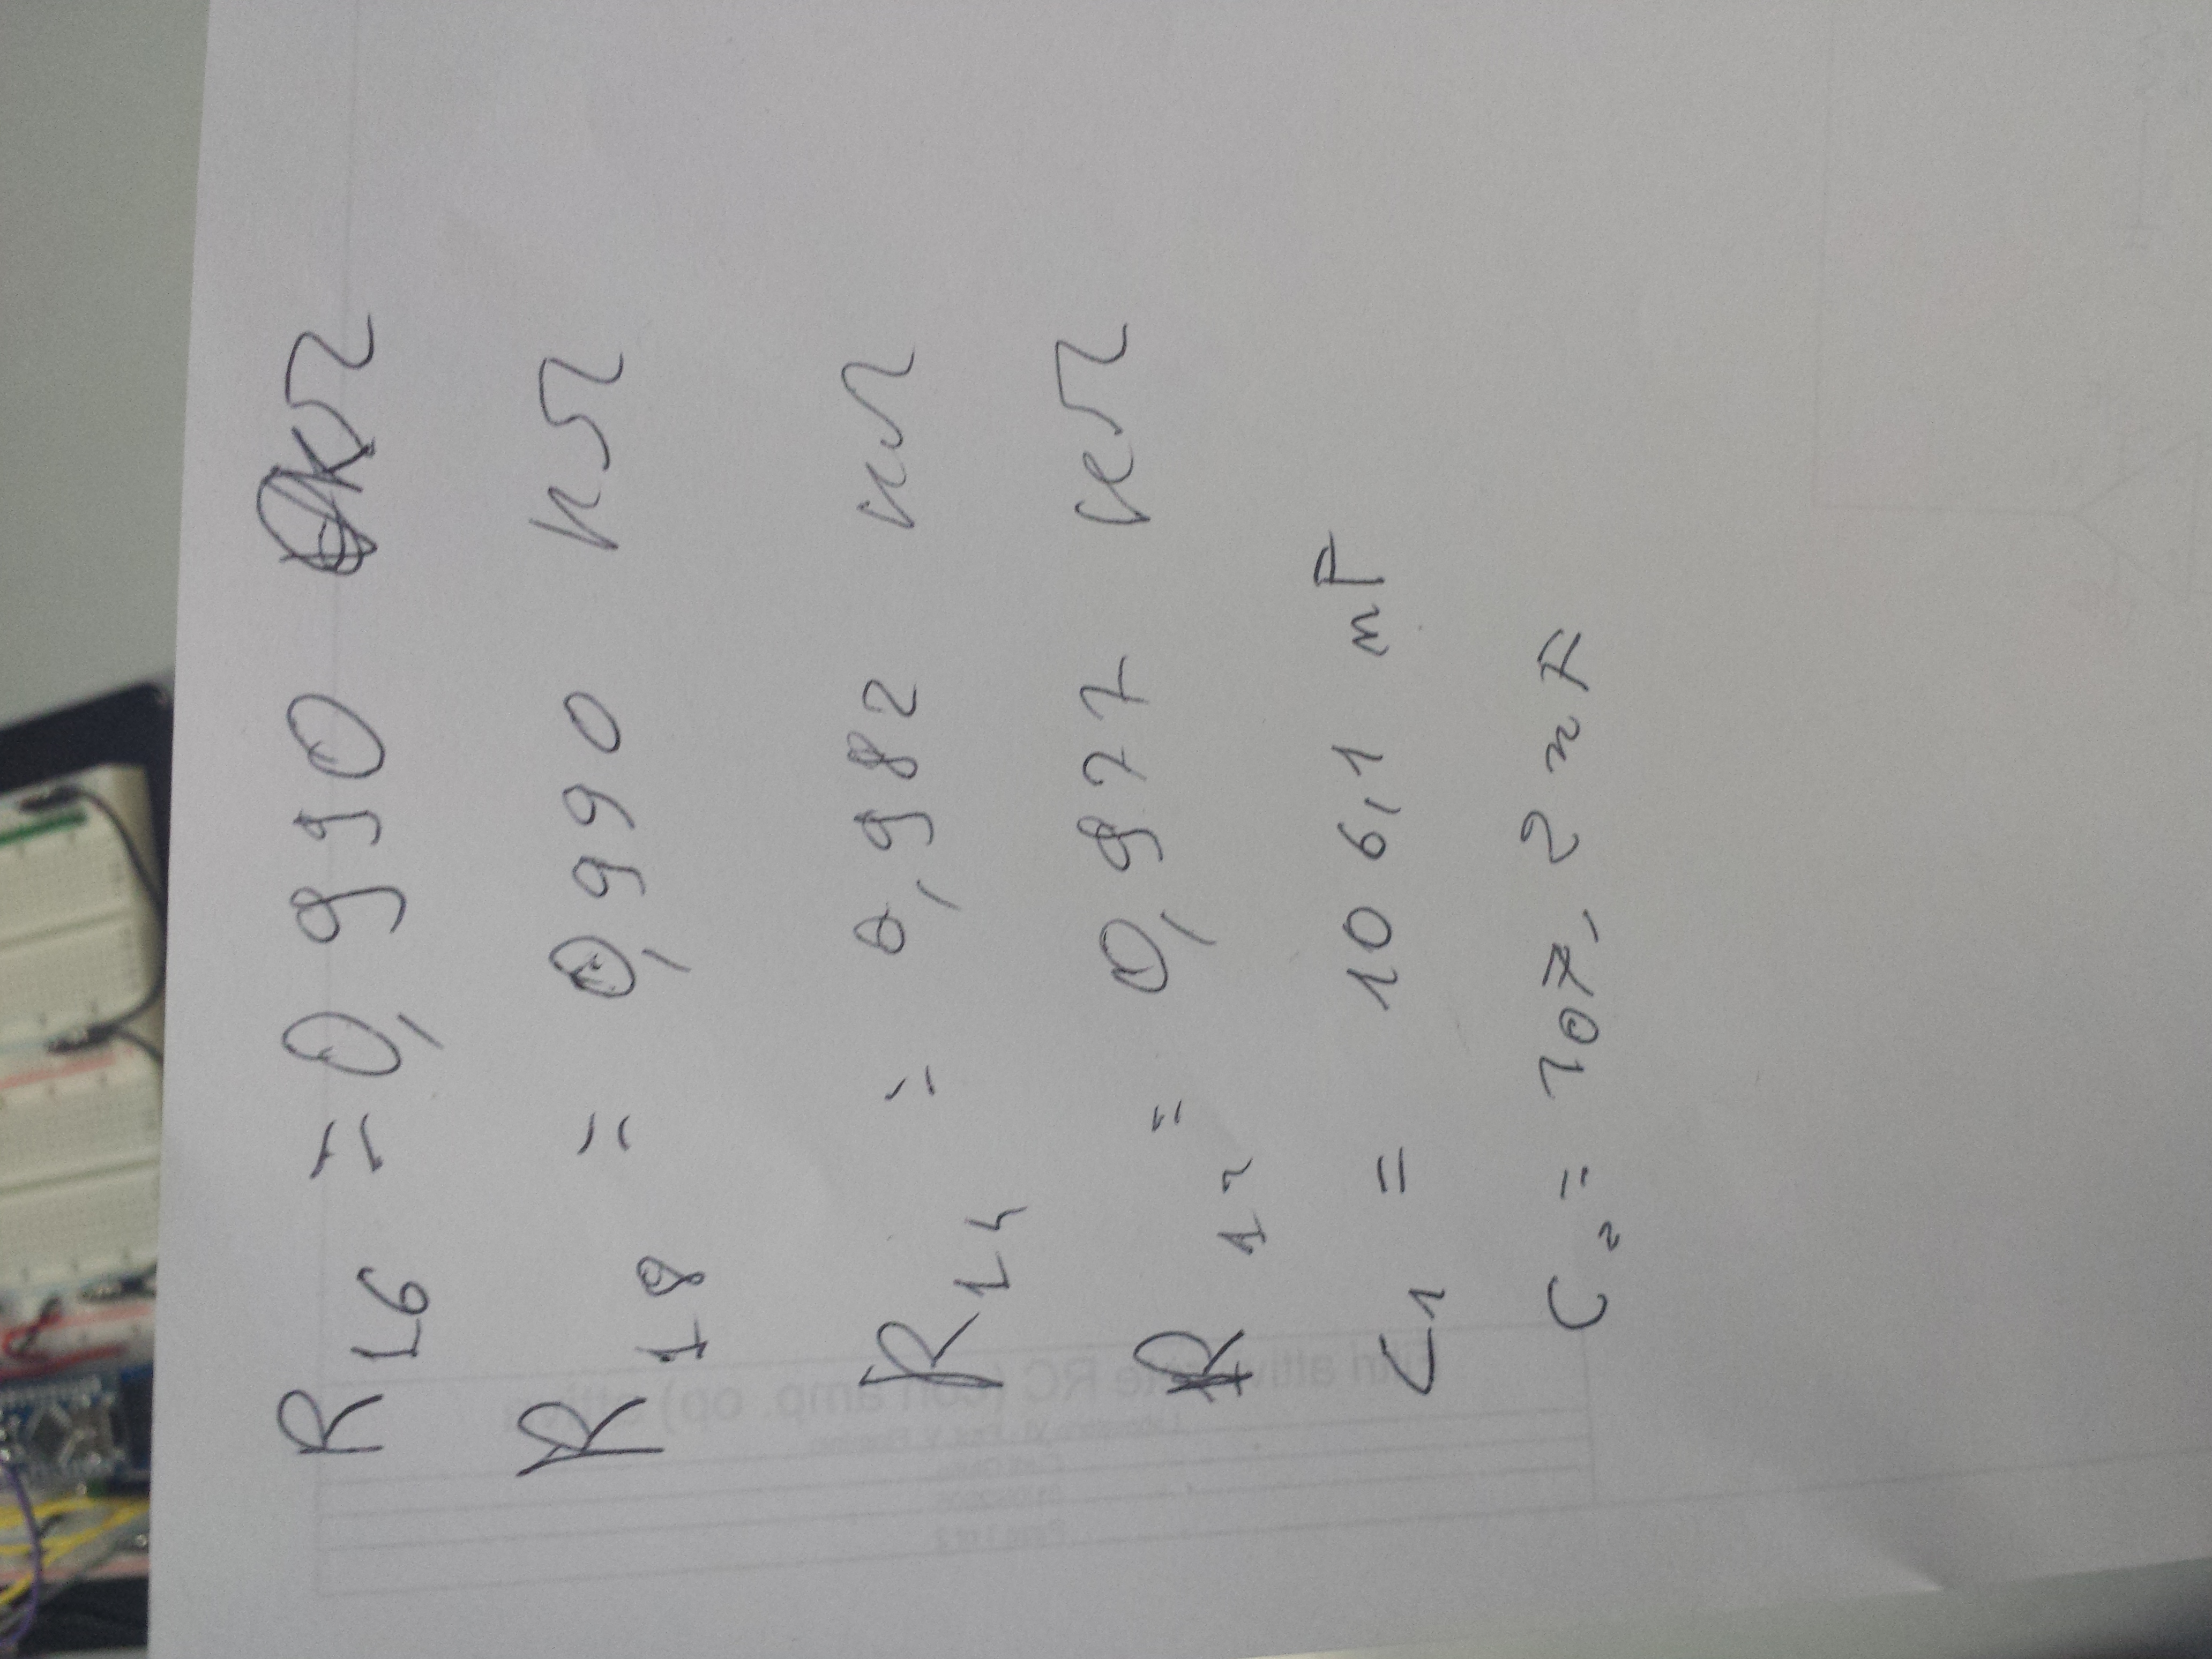 R16 = 0,990 kΩ
R18 = 0,990 kΩ
R14 = 0,982 kΩ
R12 = 0,977 kΩ
C1 = 106,1 nF
C2 = 107,2 nF